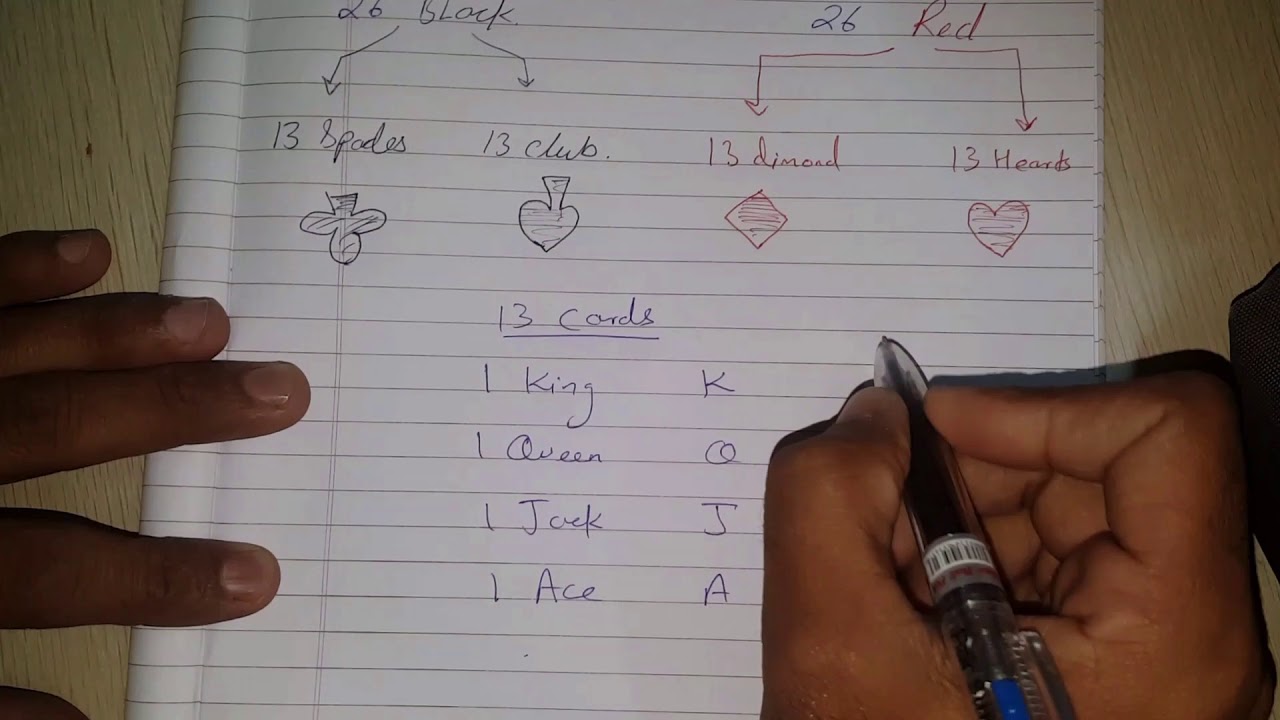 26 Black 26 Red
13 Spades 13 club. 13 dimond 13 Hearts
13 Cards
1 King K
1 Queen Q
1 Jack J
1 Ace A